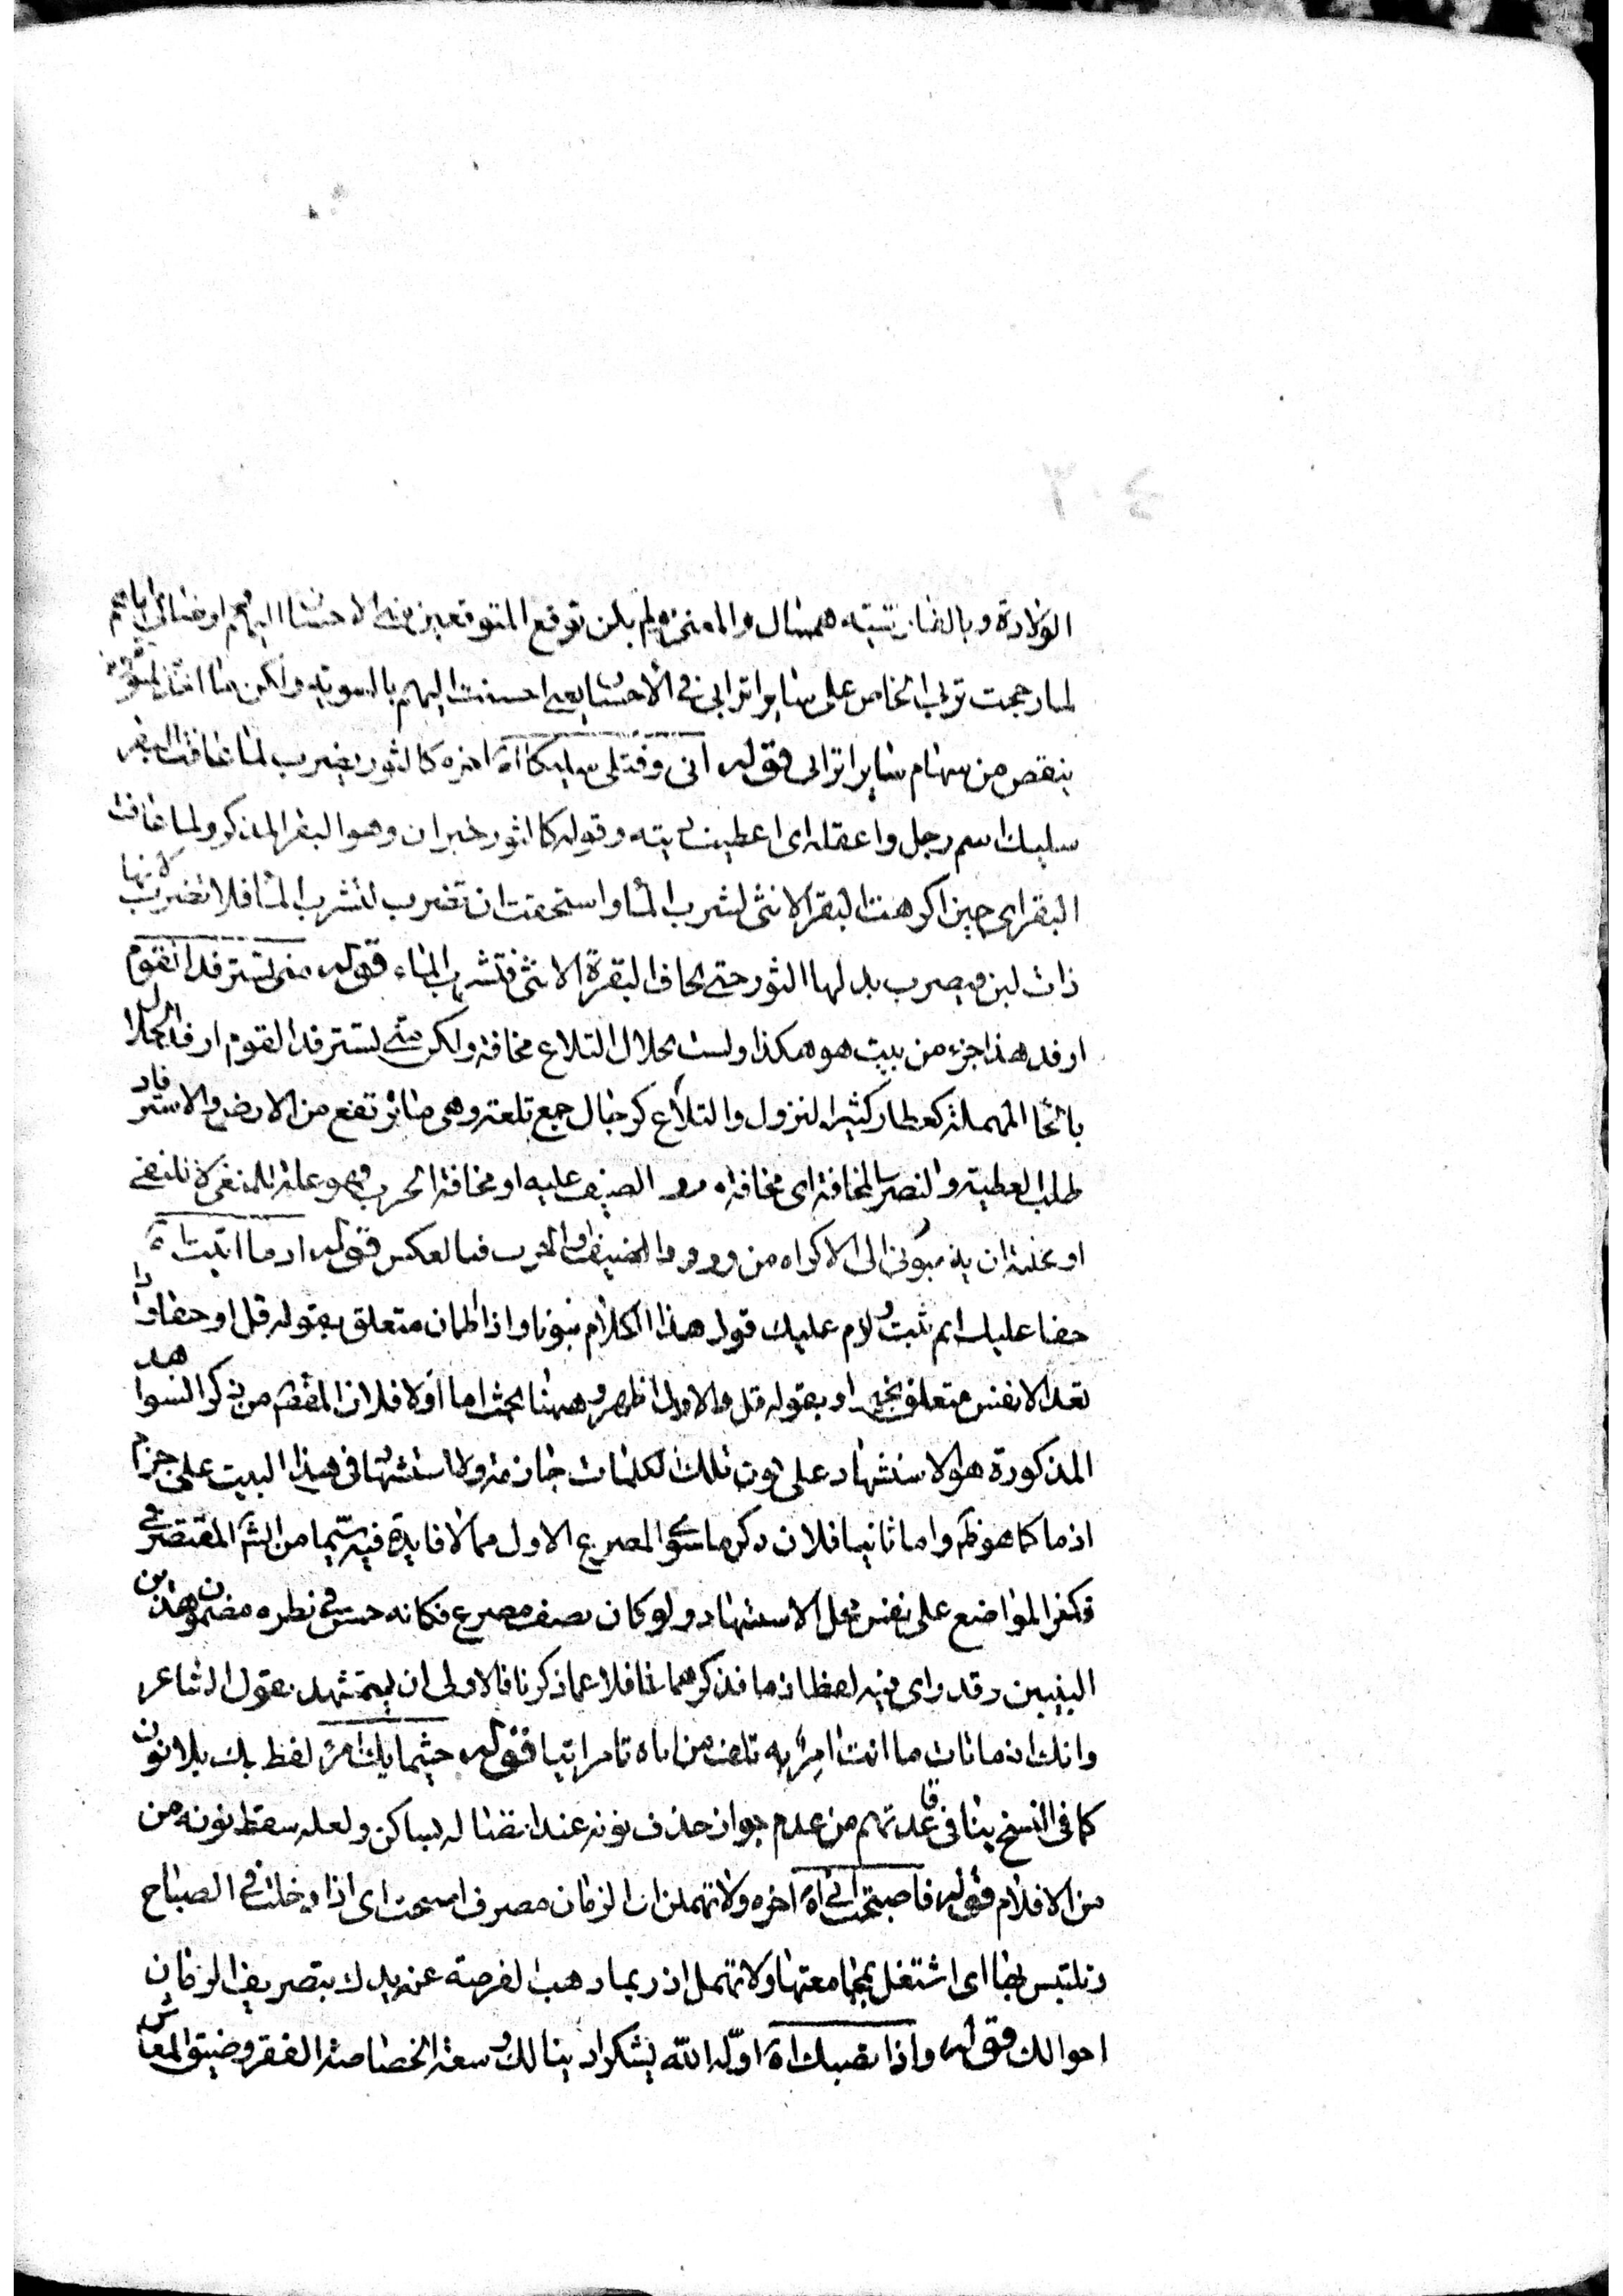 الولادة وبالفارسية همسال والمعنى لم يكن توقع المتوقعين منى الاحسان اليهم او رضائى اياهم
لما رجحت تربى الخاص على ساير اترابى فى الاحسان يعنى احسنت اليهم بالسوية ولكن
ينقص من سهام ساير اترابى قوله انى وقتلى سليكا اه اخره كالثور يضرب لما عافت البقر
سليك اسم رجل واعقله اى اعطيت ديته وقوله كالثور خبر ان وهو البقر المذكر ولما عافت
البقر اى حين اكرهت البقر الانثى لشرب الماء واستحقت ان تضرب لتشرب الماء فلا تضرب لانها
ذات لبن ويضرب بدلها الثور حتى يخاف البقرة الانثى فتشرب الماء قوله متى تسترفد القوم
ارفد هذا جزء من بيت هو هكذا ولست بحلال التلاع مخافة ولكن متى تسترفد القوم ارفد الحلال
بالحا المهملة كعطار كثير النزول والتلاع كرجال جمع تلعة وهى ما ارتفع من الارض والاسترفاد
طلب العطية والنصر والمخافة اى مخافة ورود الضيف عليه او مخافة الحرب وهو علة للمنفى لا للنفى
او علة ان يؤل الى الاكراه من ورود الضيف والحرب فبالعكس قوله اذ ما اتيت
حقا عليك اى ثبت ولازم عليك قول هذا الكلام واذا اطمان متعلق بقوله قل او حقا واذا
تعد الانفس متعلق بخير او بقوله قل والاول اظهر وههنا بحث اما اولا فلان المقصد من ذكر الشواهد
المذكورة هو الاستشهاد على كون تلك الكلمات جازمة ولا استشهاد فى هذا البيت على جزم
اذ ما كما هو ظ واما ثانيا فلان ذكر ما سوى المصرع الاول مما لا فايدة فيه سيما من الش المقتصر فى
اكثر المواضع على نفس محل الاستشهاد ولو كان نصف مصرع فكانه حسن فى نظره مضمون هذين
البيتين وقد راى فيه لفظ اذ ما فذكرهما غافلا عما ذكرنا فالاولى ان يستشهد بقول الشاعر
وانك اذ ما تات ما انت امر به تلف من اياه تامر اتيا قوله حيثما يك امر لفظ يك بلا نون
كما فى النسخ ينافى قاعدتهم من عدم جواز حذف نونه عند اتصاله بساكن ولعله سقط نونه من
من الاقلام قوله فاصبحت انى اه اخره ولا تهملن ان الزمان مصرف اصبحت اى اذا دخلت فى الصباح
وتلتبس بها اى اشتغل بمجامعتها ولا تهمل اذ ربما ذهب الفرصة عن يدك بتصريف الزمان
احوالك قوله واذا تصبك اه اوله الله يشكر اد ينالك وسعة الخصاصة الفقر وضيق المعاش